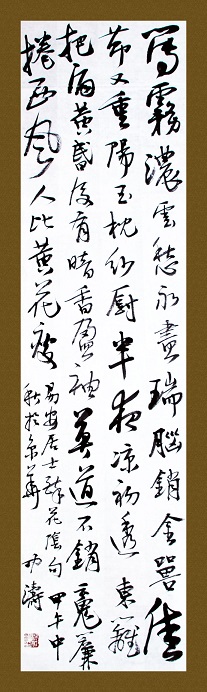 薄霧濃雲愁永晝瑞腦銷金獸佳
節又重陽玉枕紗廚半夜涼初透東籬
把酒黃昏後有暗香盈袖莫道不銷魂簾
捲西風人比黃花瘦
易安居士醉花陰句甲午中
秋於京華濤